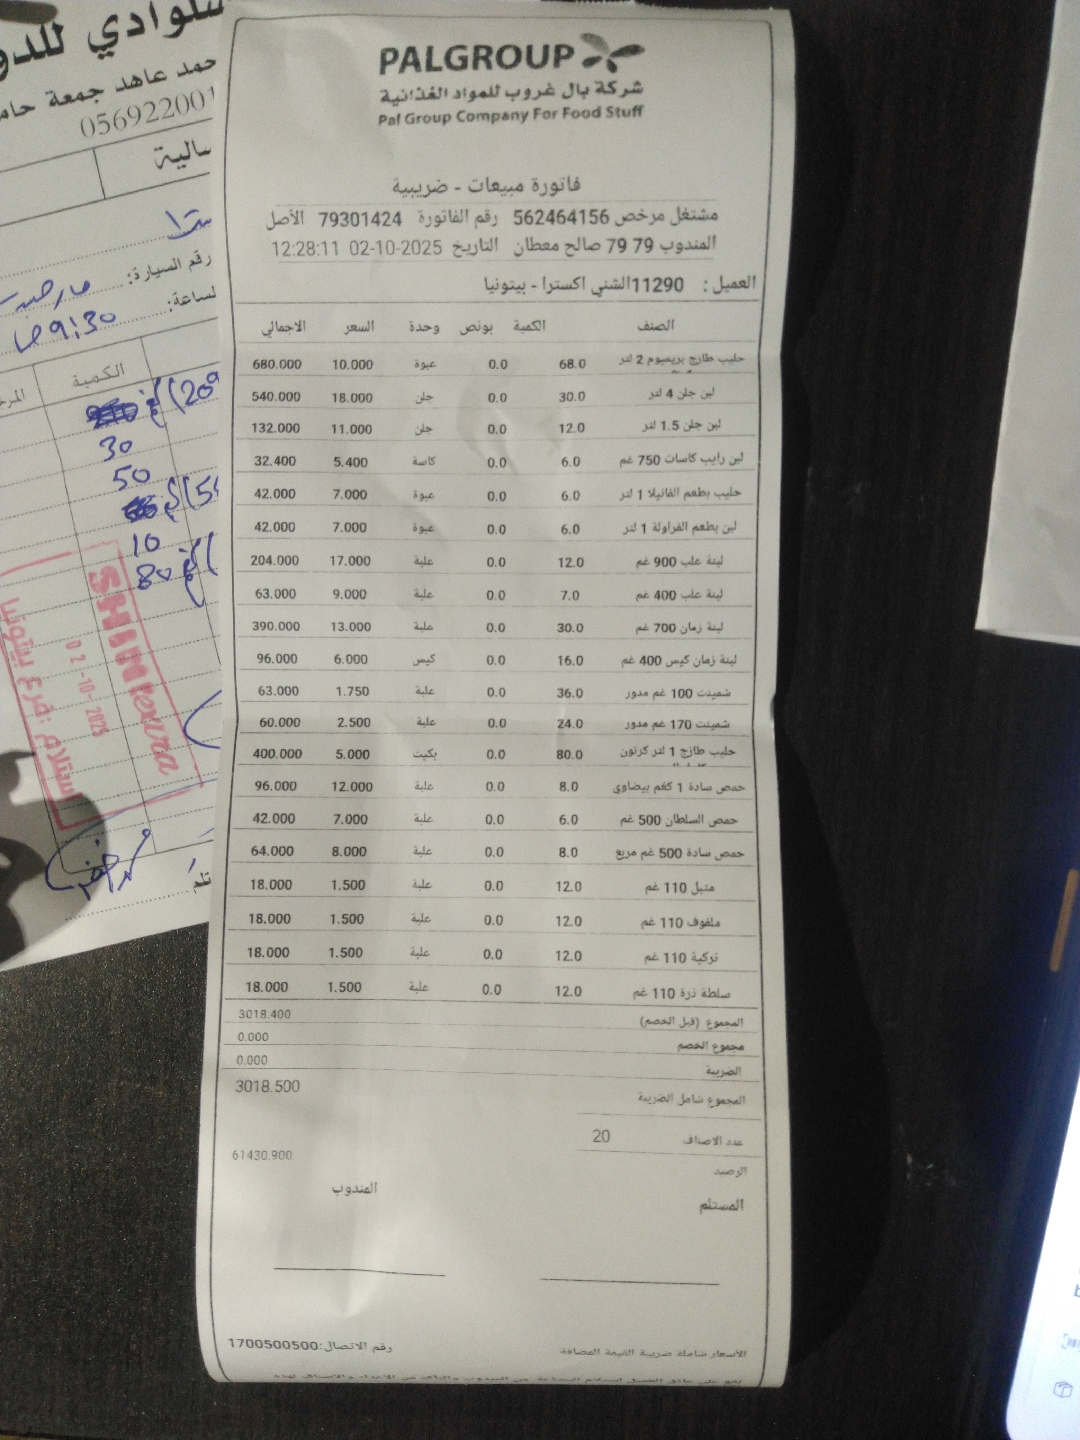 PALGROUP
شركة بال غروب للمواد الغذائية
Pal Group Company For Food Stuff
فاتورة مبيعات - ضريبية
مشتغل مرخص 562464156 رقم الفاتورة 79301424 الأصل
المندوب 79 79 صالح معطان التاريخ 02-10-2025 12:28:11
العميل : 11290الشني اكسترا - بيتونيا
الصنف الكمية بونص وحدة السعر الاجمالي
حليب طازج بريميوم 2 لتر 68.0 0.0 عبوة 10.000 680.000
لبن جلن 4 لتر 30.0 0.0 جلن 18.000 540.000
لبن جلن 1.5 لتر 12.0 0.0 جلن 11.000 132.000
لبن رايب كاسات 750 غم 6.0 0.0 كاسة 5.400 32.400
حليب بطعم الفانيلا 1 لتر 6.0 0.0 عبوة 7.000 42.000
لبن بطعم الفراولة 1 لتر 6.0 0.0 عبوة 7.000 42.000
لبنة علب 900 غم 12.0 0.0 علبة 17.000 204.000
لبنة علب 400 غم 7.0 0.0 علبة 9.000 63.000
لبنة زمان 700 غم 30.0 0.0 علبة 13.000 390.000
لبنة زمان كيس 400 غم 16.0 0.0 كيس 6.000 96.000
شمينت 100 غم مدور 36.0 0.0 علبة 1.750 63.000
شمينت 170 غم مدور 24.0 0.0 علبة 2.500 60.000
حليب طازج 1 لتر كرتون 80.0 0.0 بكيت 5.000 400.000
حمص سادة 1 كغم بيضاوي 8.0 0.0 علبة 12.000 96.000
حمص السلطان 500 غم 6.0 0.0 علبة 7.000 42.000
حمص سادة 500 غم مربع 8.0 0.0 علبة 8.000 64.000
متبل 110 غم 12.0 0.0 علبة 1.500 18.000
ملفوف 110 غم 12.0 0.0 علبة 1.500 18.000
تركية 110 غم 12.0 0.0 علبة 1.500 18.000
سلطة ذرة 110 غم 12.0 0.0 علبة 1.500 18.000
المجموع (قبل الخصم) 3018.400
مجموع الخصم 0.000
الضريبة 0.000
المجموع شامل الضريبة 3018.500
عدد الاصناف 20
الرصيد 61430.900
المستلم المندوب
الأسعار شاملة ضريبة القيمة المضافة رقم الاتصال:1700500500
حمد عاهد جمعة
056922001
رقم السيارة:
لساعة: 9:30
الكمية
30
50
10
80
SHINI extra
02-10-2025
استلام : فرع بيتونيا